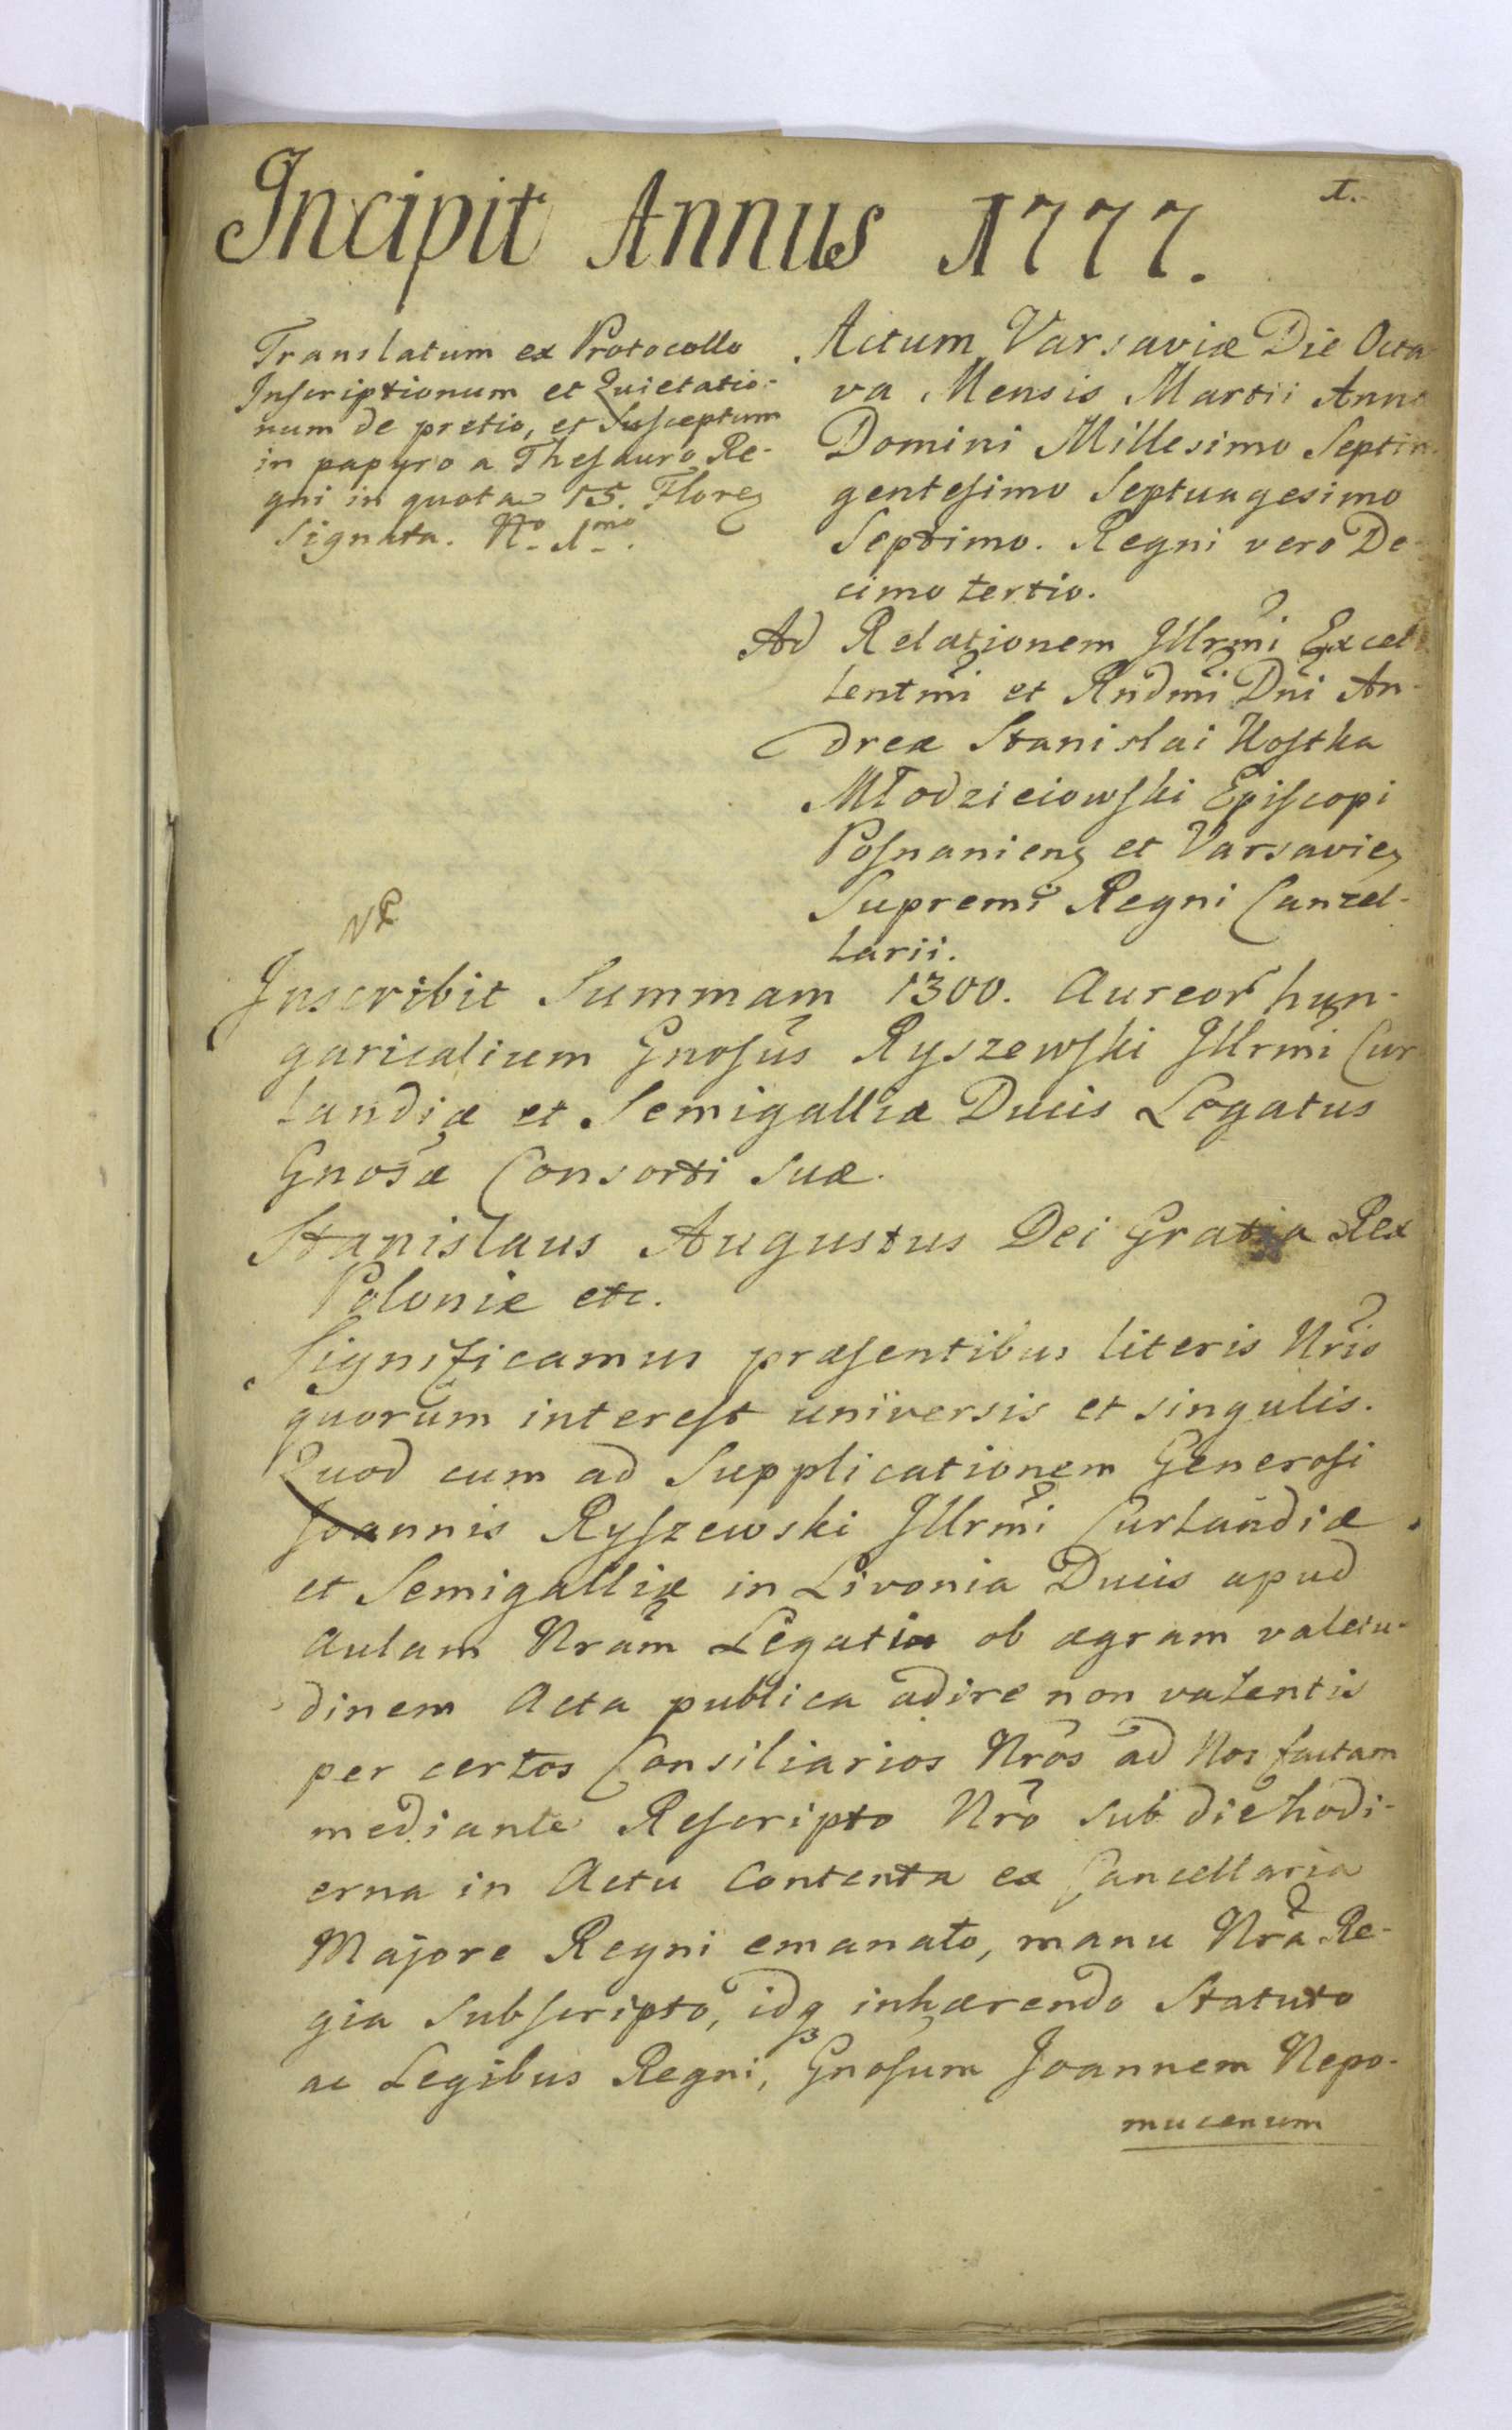 1.
Incipit Annus 1777.
Translatum ex Protocollo
Inscriptionum et Quietatio-
num de pretio, et Susceptum
in papyro a Thesauro Re-
gni in quota 15. Floren
Signata. No. 1mo.
Actum Varsaviæ Die Octa
va Mensis Martii Anno
Domini Millesimo Septin
gentesimo Septuagesimo
Septimo. Regni vero De-
cimo tertio.
Ad Relationem Jllrmi Excel
lentmi et Rndmi Dni An-
dreæ Stanislai Kostka
Młodzieiowski Episcopi
Posnanien et Varsavien
Supremi Regni Cancel-
larii.
Inscribit Summam 1300. Aureor hun-
garicalium Gnosus Ryszewski Jllrmi Cur
landiæ et Semigalliæ Ducis Legatus
Gnosæ Consorti suæ.
Stanislaus Augustus Dei Gratia Rex
Poloniæ etc.
Significamus præsentibus literis Nris
quorum interest universis et singulis.
Quod cum ad Supplicationem Generosi
Joannis Ryszewski Jllrmi Curlandiæ
et Semigalliæ in Livonia Ducis apud
Aulam Nram Legati ob ægram valetu-
dinem Acta publica adire non valentis
per certos Consiliarios Nros ad Nos factam
mediante Rescripto Nro sub die hodi-
erna in Actu contenta ex Cancellaria
Majore Regni emanato, manu Nra Re-
gia Subscripto, idq inhærendo Statuto
ac Legibus Regni, Gnosum Joannem Nepo-
mucenum